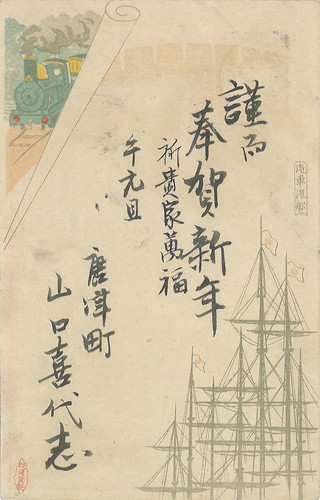 謹而
奉賀新年
祈貴家萬福
午元旦
唐津町
山口喜代志